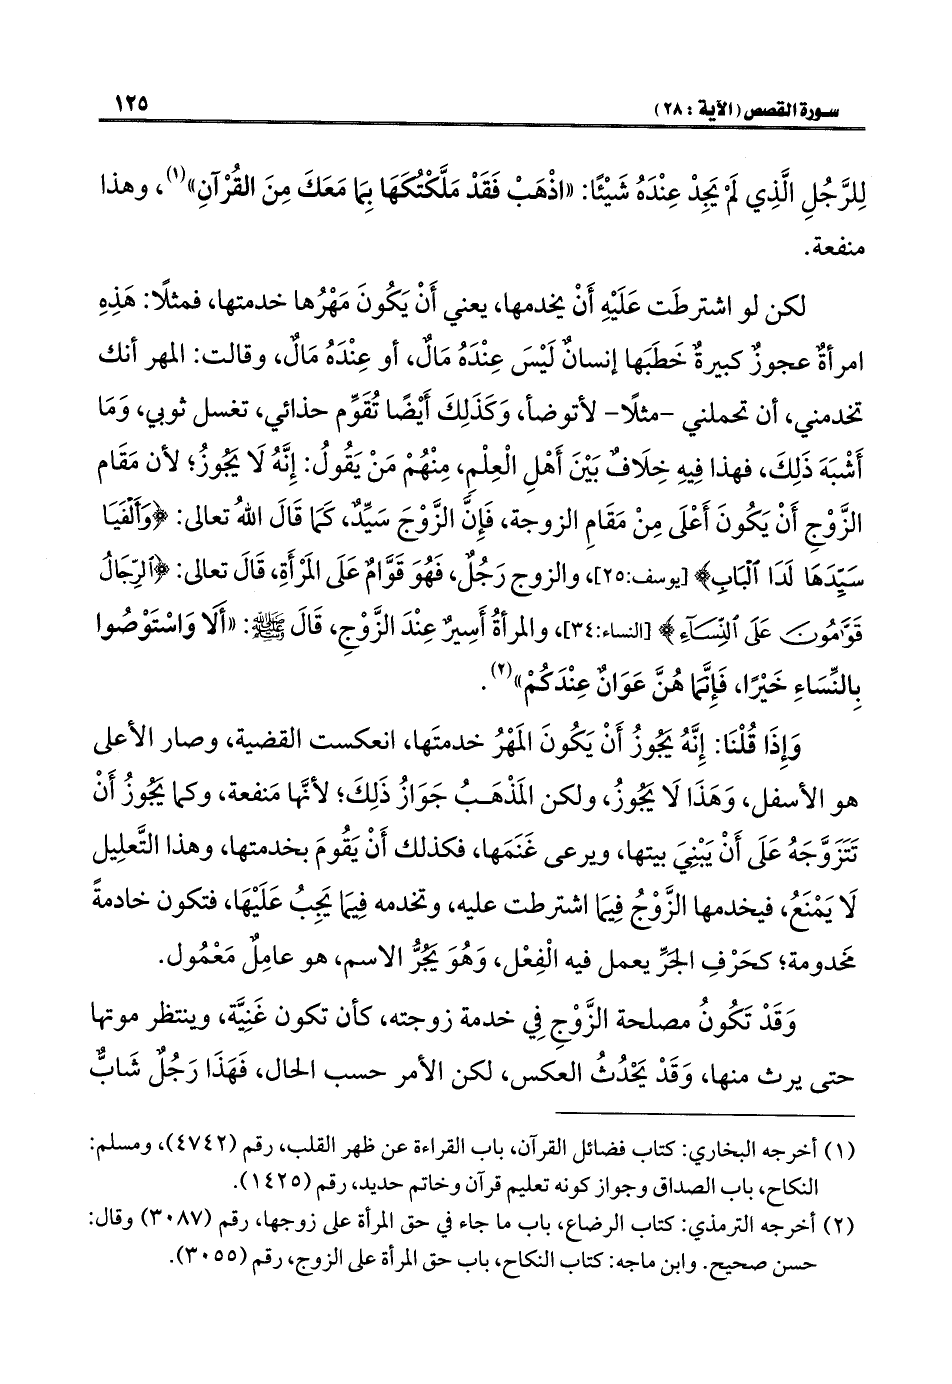 سورة القصص (الآية : ٢٨)
١٢٥
لِلرَّجُلِ الَّذِي لَمْ يَجِدْ عِنْدَهُ شَيْئًا: «اذْهَبْ فَقَدْ مَلَّكْتُكَهَا بِمَا مَعَكَ مِنَ القُرْآنِ»(١)، وهذا
منفعة.
لكن لو اشترطَت عَلَيْهِ أَنْ يخدمها، يعني أَنْ يَكُونَ مَهْرُها خدمتها، فمثلًا: هَذِهِ
امرأةٌ عجوزٌ كبيرةٌ خَطَبَها إنسانٌ لَيْسَ عِنْدَهُ مَالٌ، أو عِنْدَهُ مَالٌ، وقالت: المهر أنك
تخدمني، أن تحملني -مثلًا- لأتوضأ، وَكَذَلِكَ أَيْضًا تُقَوِّم حذائي، تغسل ثوبي، وَمَا
أَشْبَهَ ذَلِكَ، فهذا فِيهِ خِلَافٌ بَيْنَ أَهْلِ الْعِلْمِ، مِنْهُمْ مَنْ يَقُولُ: إِنَّهُ لَا يَجُوزُ؛ لأن مَقَام
الزَّوْجِ أَنْ يَكُونَ أَعْلَى مِنْ مَقَامِ الزوجة، فَإِنَّ الزَّوْجَ سَيِّدٌ، كَمَا قَالَ اللهُ تعالى: ﴿وَأَلْفَيَا
سَيِّدَهَا لَدَا ٱلْبَابِ﴾ [يوسف:٢٥]، والزوج رَجُلٌ، فَهُوَ قَوَّامٌ عَلَى المَرْأَةِ، قَالَ تعالى: ﴿ٱلرِّجَالُ
قَوَّٰمُونَ عَلَى ٱلنِّسَآءِ﴾ [النساء:٣٤]، والمرأةُ أسِيرٌ عِنْدَ الزَّوْجِ، قَالَ ﷺ: «أَلَا وَاسْتَوْصُوا
بِالنِّسَاءِ خَيْرًا، فَإِنَّمَا هُنَّ عَوَانٌ عِنْدَكُمْ»(٢).
وَإِذَا قُلْنَا: إِنَّهُ يَجُوزُ أَنْ يَكُونَ المَهْرُ خدمتَها، انعكست القضية، وصار الأعلى
هو الأسفل، وَهَذَا لَا يَجُوزُ، ولكن المَذْهَبُ جَوَازُ ذَلِكَ؛ لأنَّها مَنفعة، وكما يَجُوزُ أَنْ
تَتَزَوَّجَهُ عَلَى أَنْ يَبْنِيَ بيتها، ويرعى غَنَمَها، فكذلك أَنْ يَقُومَ بخدمتها، وهذا التَّعليل
لَا يَمْنَعُ، فيخدمها الزَّوْجُ فِيمَا اشترطت عليه، وتخدمه فِيمَا يَجِبُ عَلَيْهَا، فتكون خادمةً
مخدومة؛ كحَرْفِ الجَرِّ يعمل فيه الْفِعْل، وَهُوَ يَجُرُّ الاسم، هو عامِلٌ مَعْمُول.
وَقَدْ تَكُونُ مصلحة الزَّوْجِ فِي خدمة زوجته، كأن تكون غَنِيَّة، وينتظر موتها
حتى يرث منها، وَقَدْ يَحْدُثُ العكس، لكن الأمر حسب الحال، فَهَذَا رَجُلٌ شَابٌّ
(١) أخرجه البخاري: كتاب فضائل القرآن، باب القراءة عن ظهر القلب، رقم (٤٧٤٢)، ومسلم:
النكاح، باب الصداق وجواز كونه تعليم قرآن وخاتم حديد، رقم (١٤٢٥).
(٢) أخرجه الترمذي: كتاب الرضاع، باب ما جاء في حق المرأة على زوجها، رقم (٣٠٨٧) وقال:
حسن صحيح. وابن ماجه: كتاب النكاح، باب حق المرأة على الزوج، رقم (٣٠٥٥).